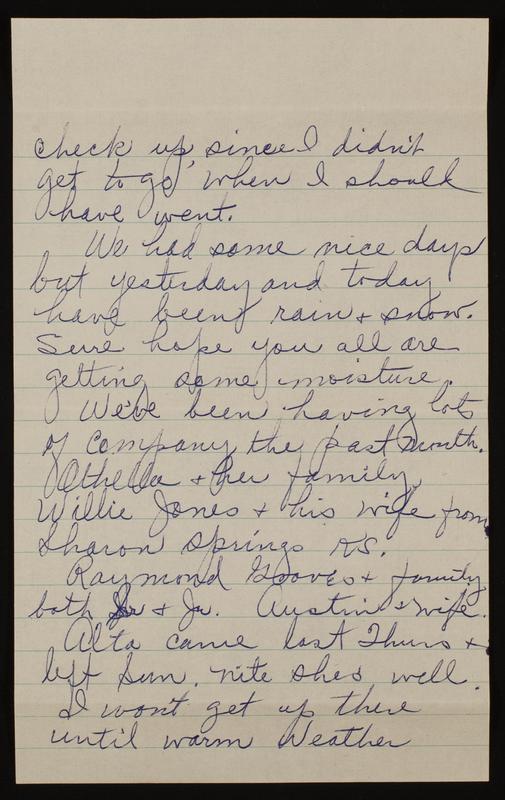 check up, since I didn't
get to go when I should
have went.
We had some nice days
but yesterday and today
have been rain & snow.
Sure hope you all are
getting some moisture.
We've been having lots
of company the past month.
Othella & her family,
Willie Jones & his wife from
Sharon Springs KS.
Raymond Groves & family
both Sr & Jr. Austin & wife.
Alta came last Thurs &
left Sun. nite shes well.
I won't get up there
until warm Weather